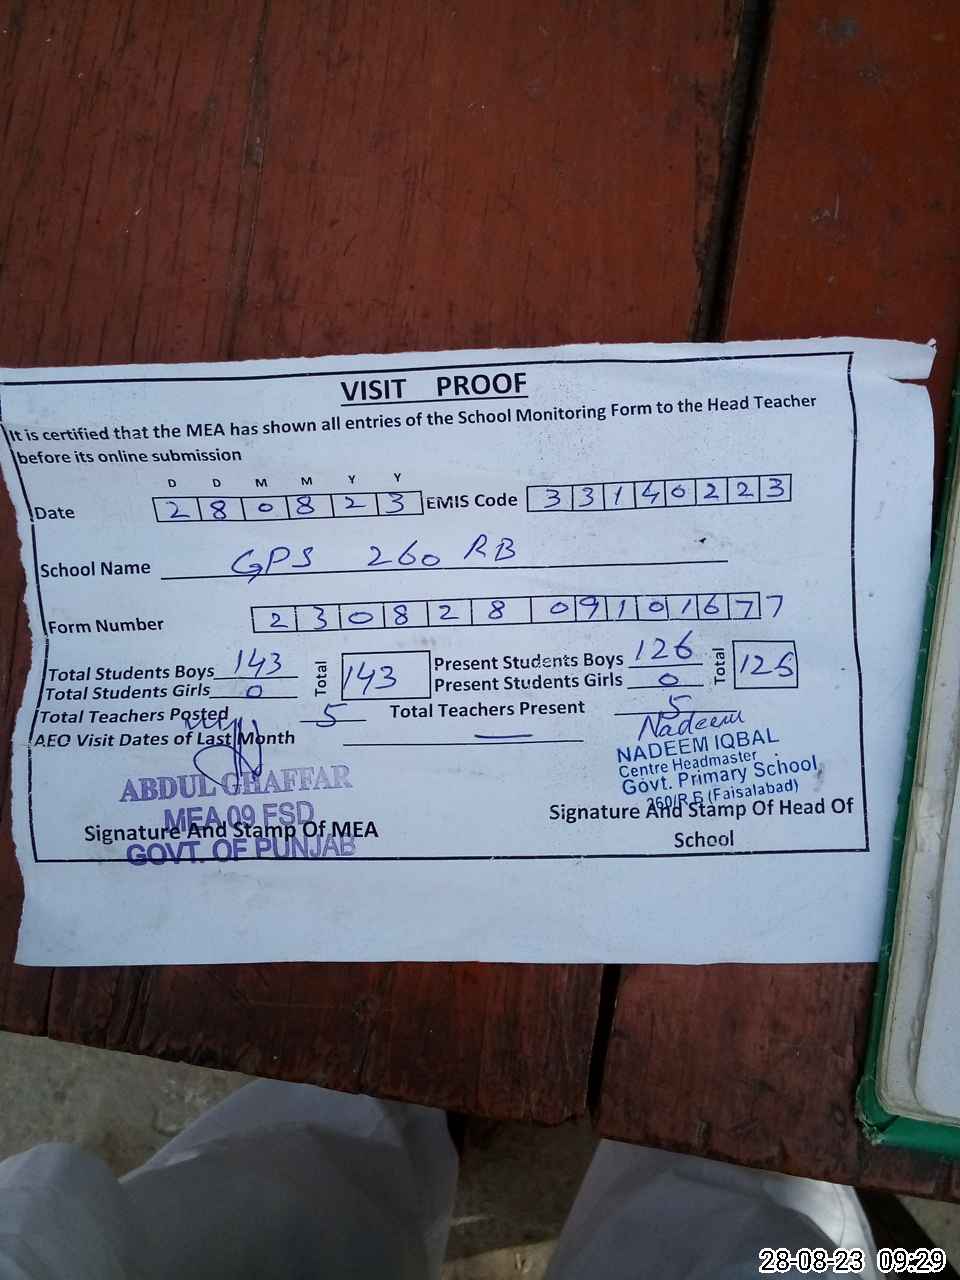 VISIT PROOF
It is certified that the MEA has shown all entries of the School Monitoring Form to the Head Teacher
before its online submission
D D M M Y Y
Date 2 8 0 8 2 3 EMIS Code 3 3 1 4 0 2 2 3
School Name GPS 260 RB
Form Number 2 3 0 8 2 8 0 9 1 0 1 6 7 7
Total Students Boys 143 Total 143 Present Students Boys 126 Total 126
Total Students Girls 0 Present Students Girls 0
Total Teachers Posted 5 Total Teachers Present 5
AEO Visit Dates of Last Month —
Nadeem
NADEEM IQBAL
Centre Headmaster
Govt. Primary School
260/R.B (Faisalabad)
ABDUL GHAFFAR
MEA 09 FSD
GOVT. OF PUNJAB
Signature And Stamp Of MEA
Signature And Stamp Of Head Of
School
28-08-23 09:29